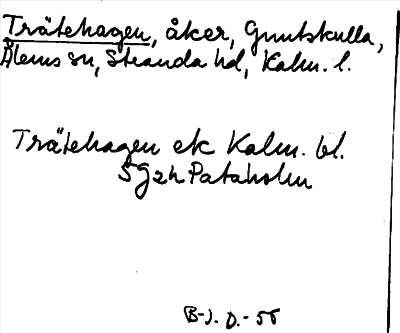 Trätehagen, åker, Guntskulla,
Ålems sn, Stranda hd, Kalm. l.
Trätehagen ek Kalm. bl.
5G2h Pataholm
B-J. D.-55